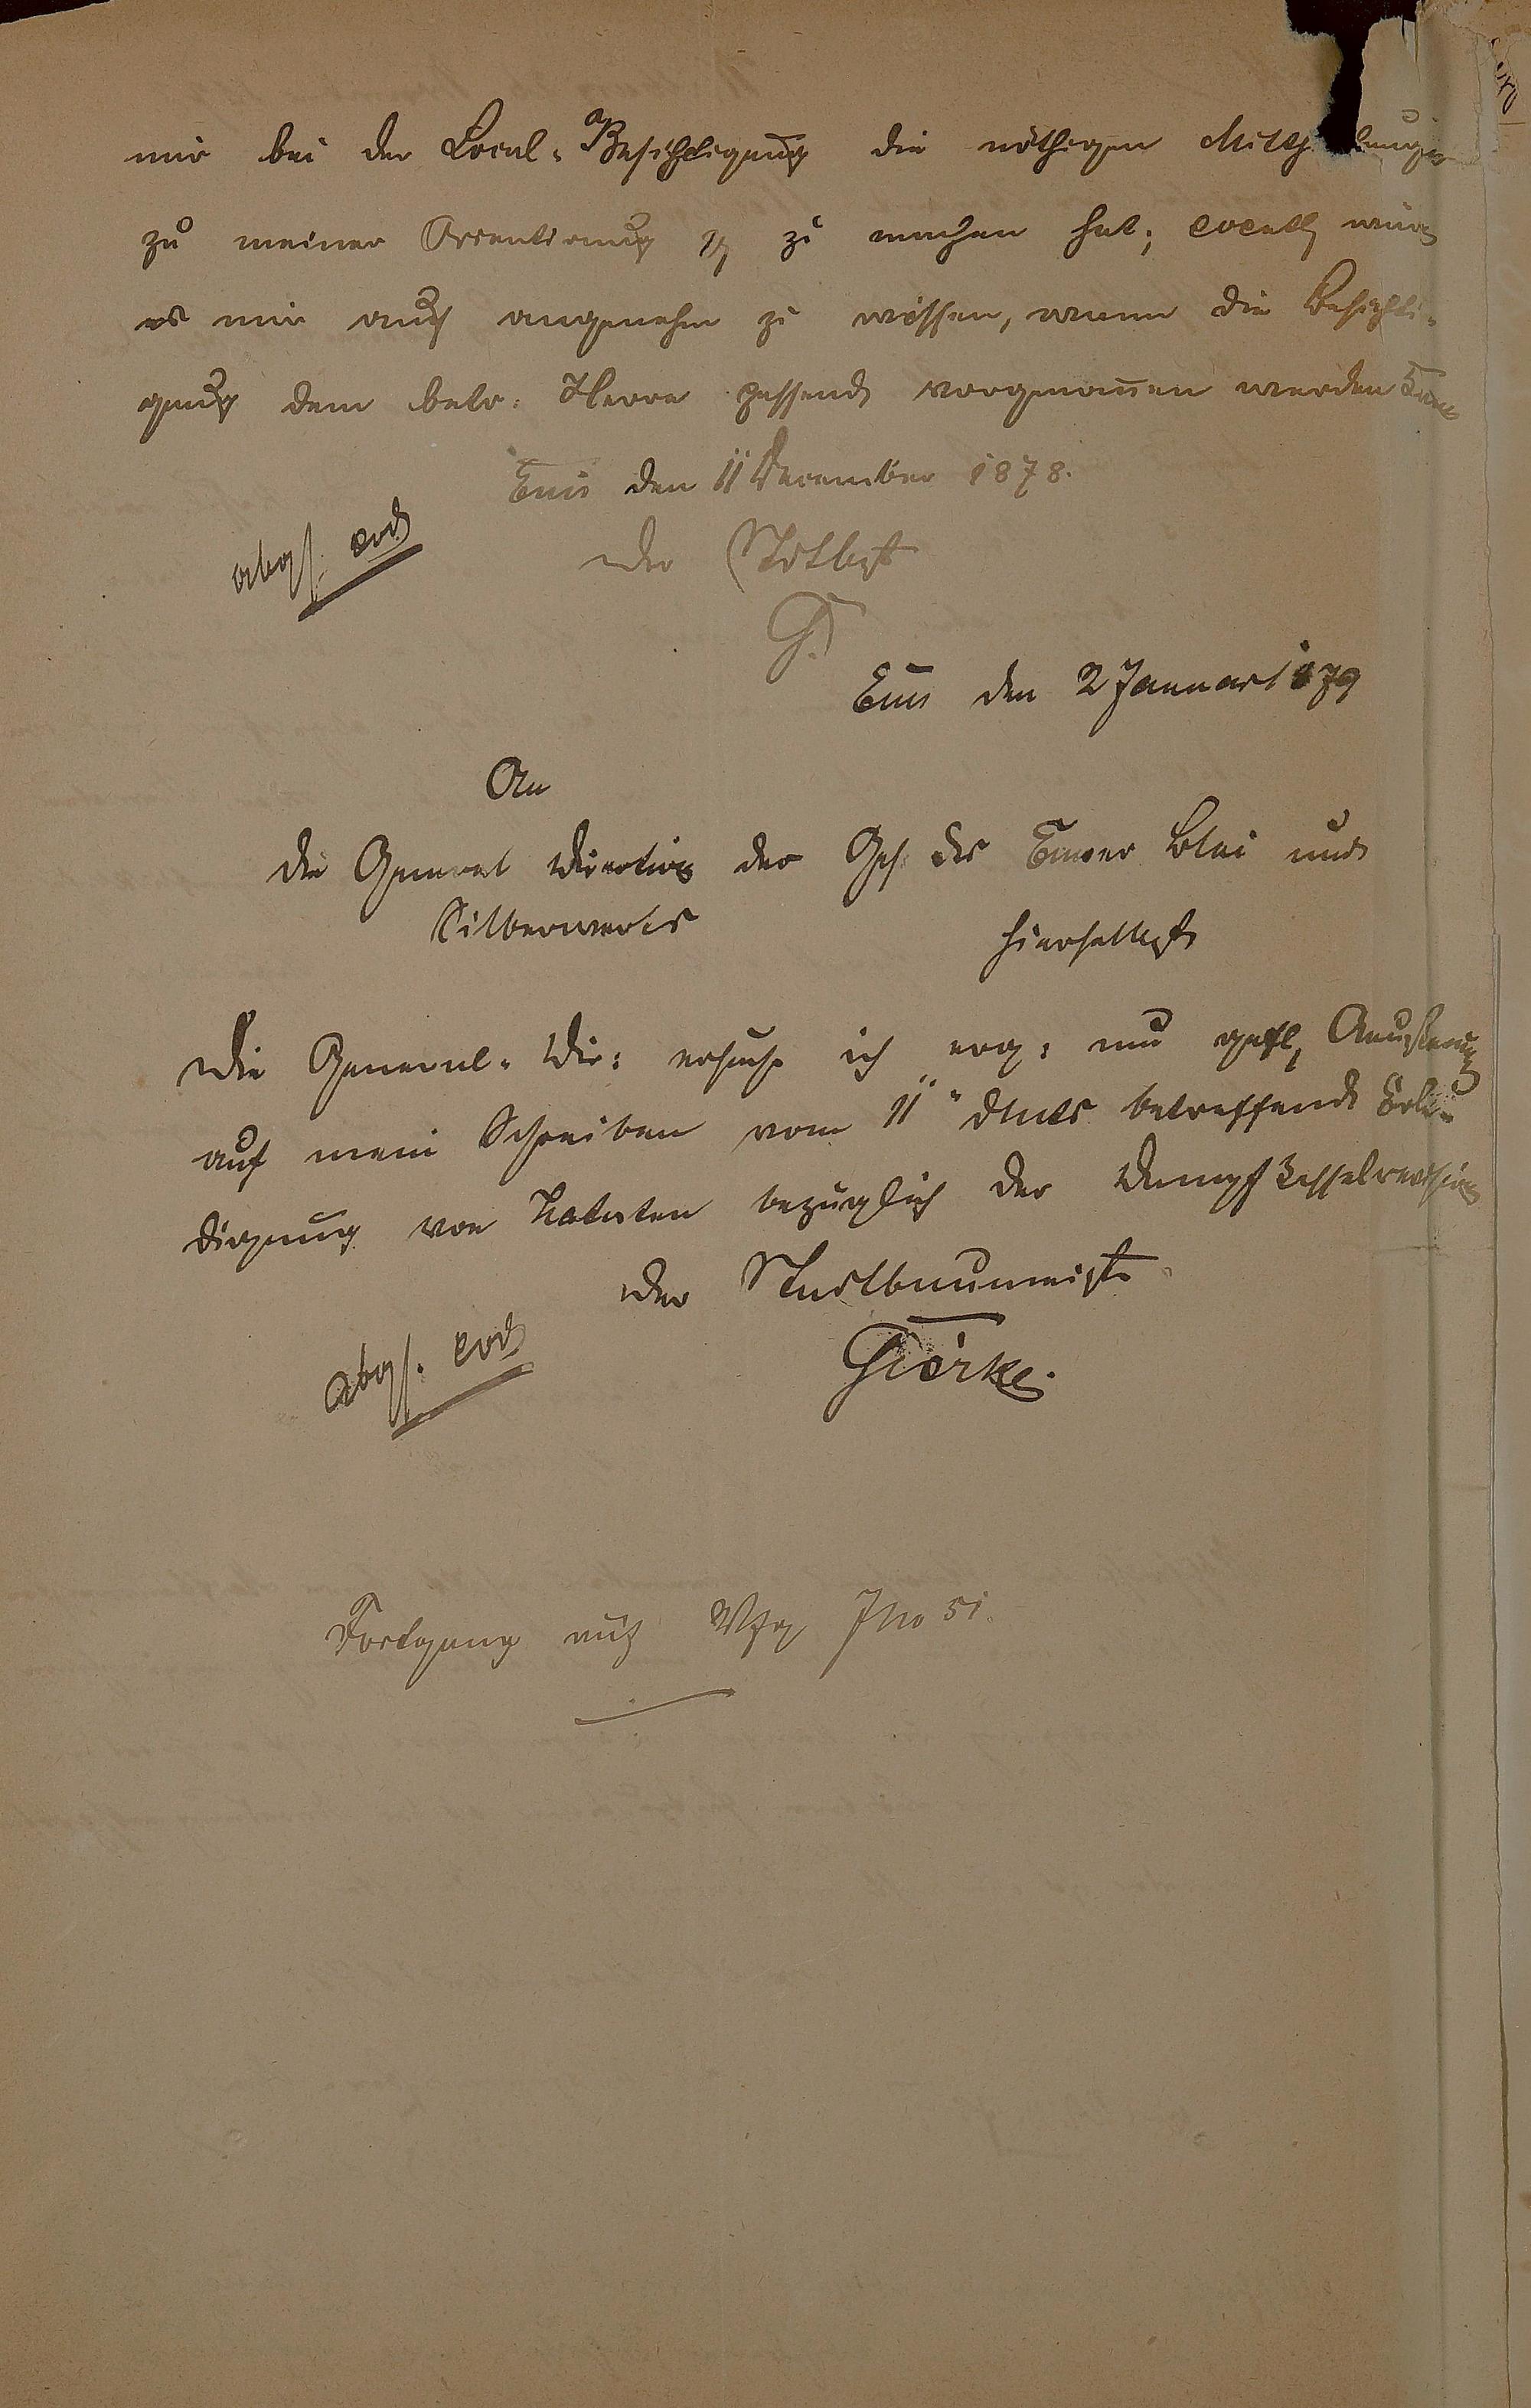 mir bei der Local-Besichtigung die nöthigen Mitth lungen
zu meiner Orientirung pp zu machen hat; eventl. würde
es mir auch angenehm zu wissen, wann die Besichti-
gung dem betr: Herrn passend vorgenommen werden kann
Ems den 11 December 1878.
abges. eod
Der Stdtbmst
G.
Ems den 2 Januar 1879
An
die General Direction der Ges. des Emser Blei und
Silberwerks hierselbst
Die General-Dir: ersuche ich erg: um gefl. Aeußerung
auf mein Schreiben vom 11 betreffend Erle-
digung von bezüglich der Dampfkesselrevision
Der Stadtbaumeister
abges. eod
Görke.
Fortgang auf Vfg JNo 51.